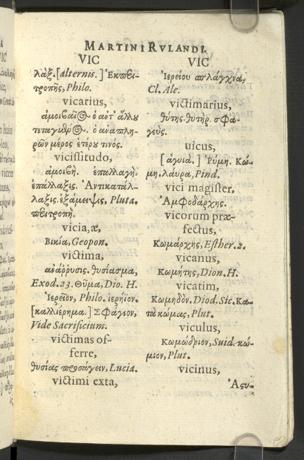 MARTINI RVLANDI.
VIC
λάξ. [alternis.] Ἐκπερι-
τροπῆς, Philo.
vicarius,
ἀμοιβαῖος. ὁ αὐτ' ἄλλου
ὁ ἀναπλη-
ρῶν μέρος ἐπρυ τινός.
vicissitudo,
ἀμοιβή. ἐπαλλαγή.
ἐπάλλαξις. Ἀντικατάλ-
λαξις. ἐξάμειψις, Pluta.
περιτροπή.
vicia, æ,
Βικία, Geopon.
victima,
θυσίασμα,
Exod. 23. Θῦμα, Dio. H.
Ἱερεῖον, Philo. ἱερήϊον.
[καλλιέρημα.] Σφάγιον,
Vide Sacrificium.
victimas of-
ferre,
θυσίας προσάγειν, Lucia.
victimi exta,
VIC
Ἱερείου σπλάγχνα,
Cl. Ale.
victimarius,
θύτης θυτὴρ. σφα-
γεύς.
uicus,
[ἀγυιά.] Ῥύμη. Κώ-
μη. λαύρα, Pind.
vici magister,
Ἀμφοδάρχης.
vicorum præ-
fectus,
Κωμάρχης, Esther. 2.
vicanus,
Κωμήτης, Dion. H.
vicatim,
Κωμηδόν. Diod. Sic. Κα-
τὰ κώμας, Plut.
viculus,
Κωμώδριον, Suid. κώ-
μιον, Plut.
vicinus,
Ἀςυ-